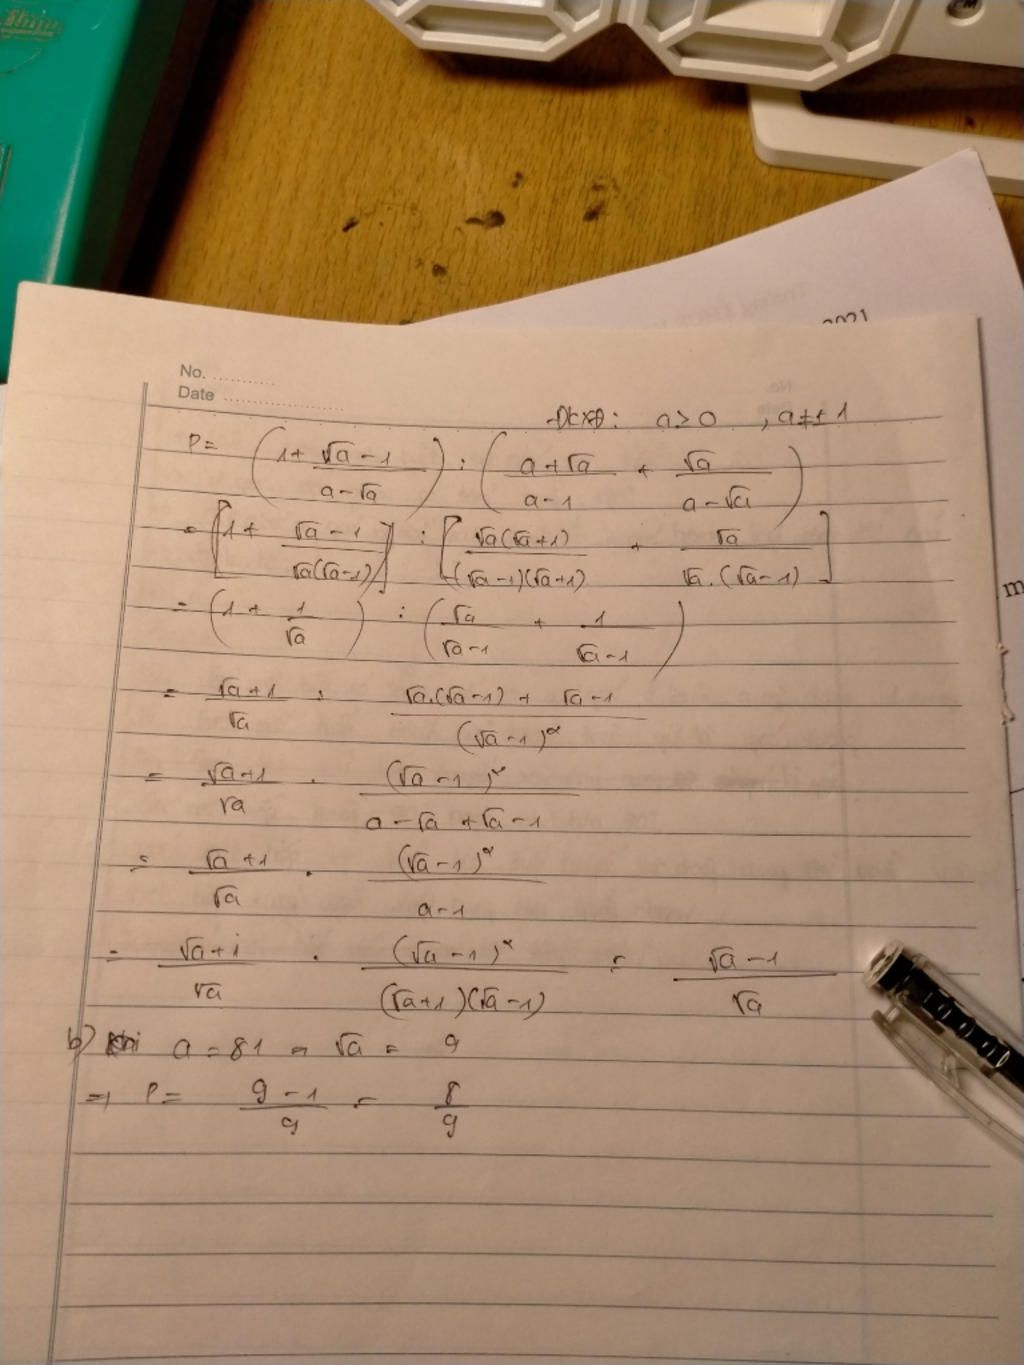 2021
No. ............
Date ........................
ĐKXĐ: a≥0 , a≠±1
P= (1+ (√a-1)/(a-√a)) : ((a+√a)/(a-1) + √a/(a-√a))
= [1+ (√a-1)/(√a(√a-1))] : [√a(√a+1)/((√a-1)(√a+1)) + √a/(√a.(√a-1))]
= (1+ 1/√a) : (√a/(√a-1) + 1/(√a-1))
= (√a+1)/√a : (√a.(√a-1) + √a-1)/(√a-1)²
= (√a+1)/√a . (√a-1)²/(a-√a+√a-1)
= (√a+1)/√a . (√a-1)²/(a-1)
= (√a+1)/√a . (√a-1)²/((√a+1)(√a-1)) = (√a-1)/√a
b) Khi a=81 = √a = 9
=> P= (9-1)/9 = 8/9
m